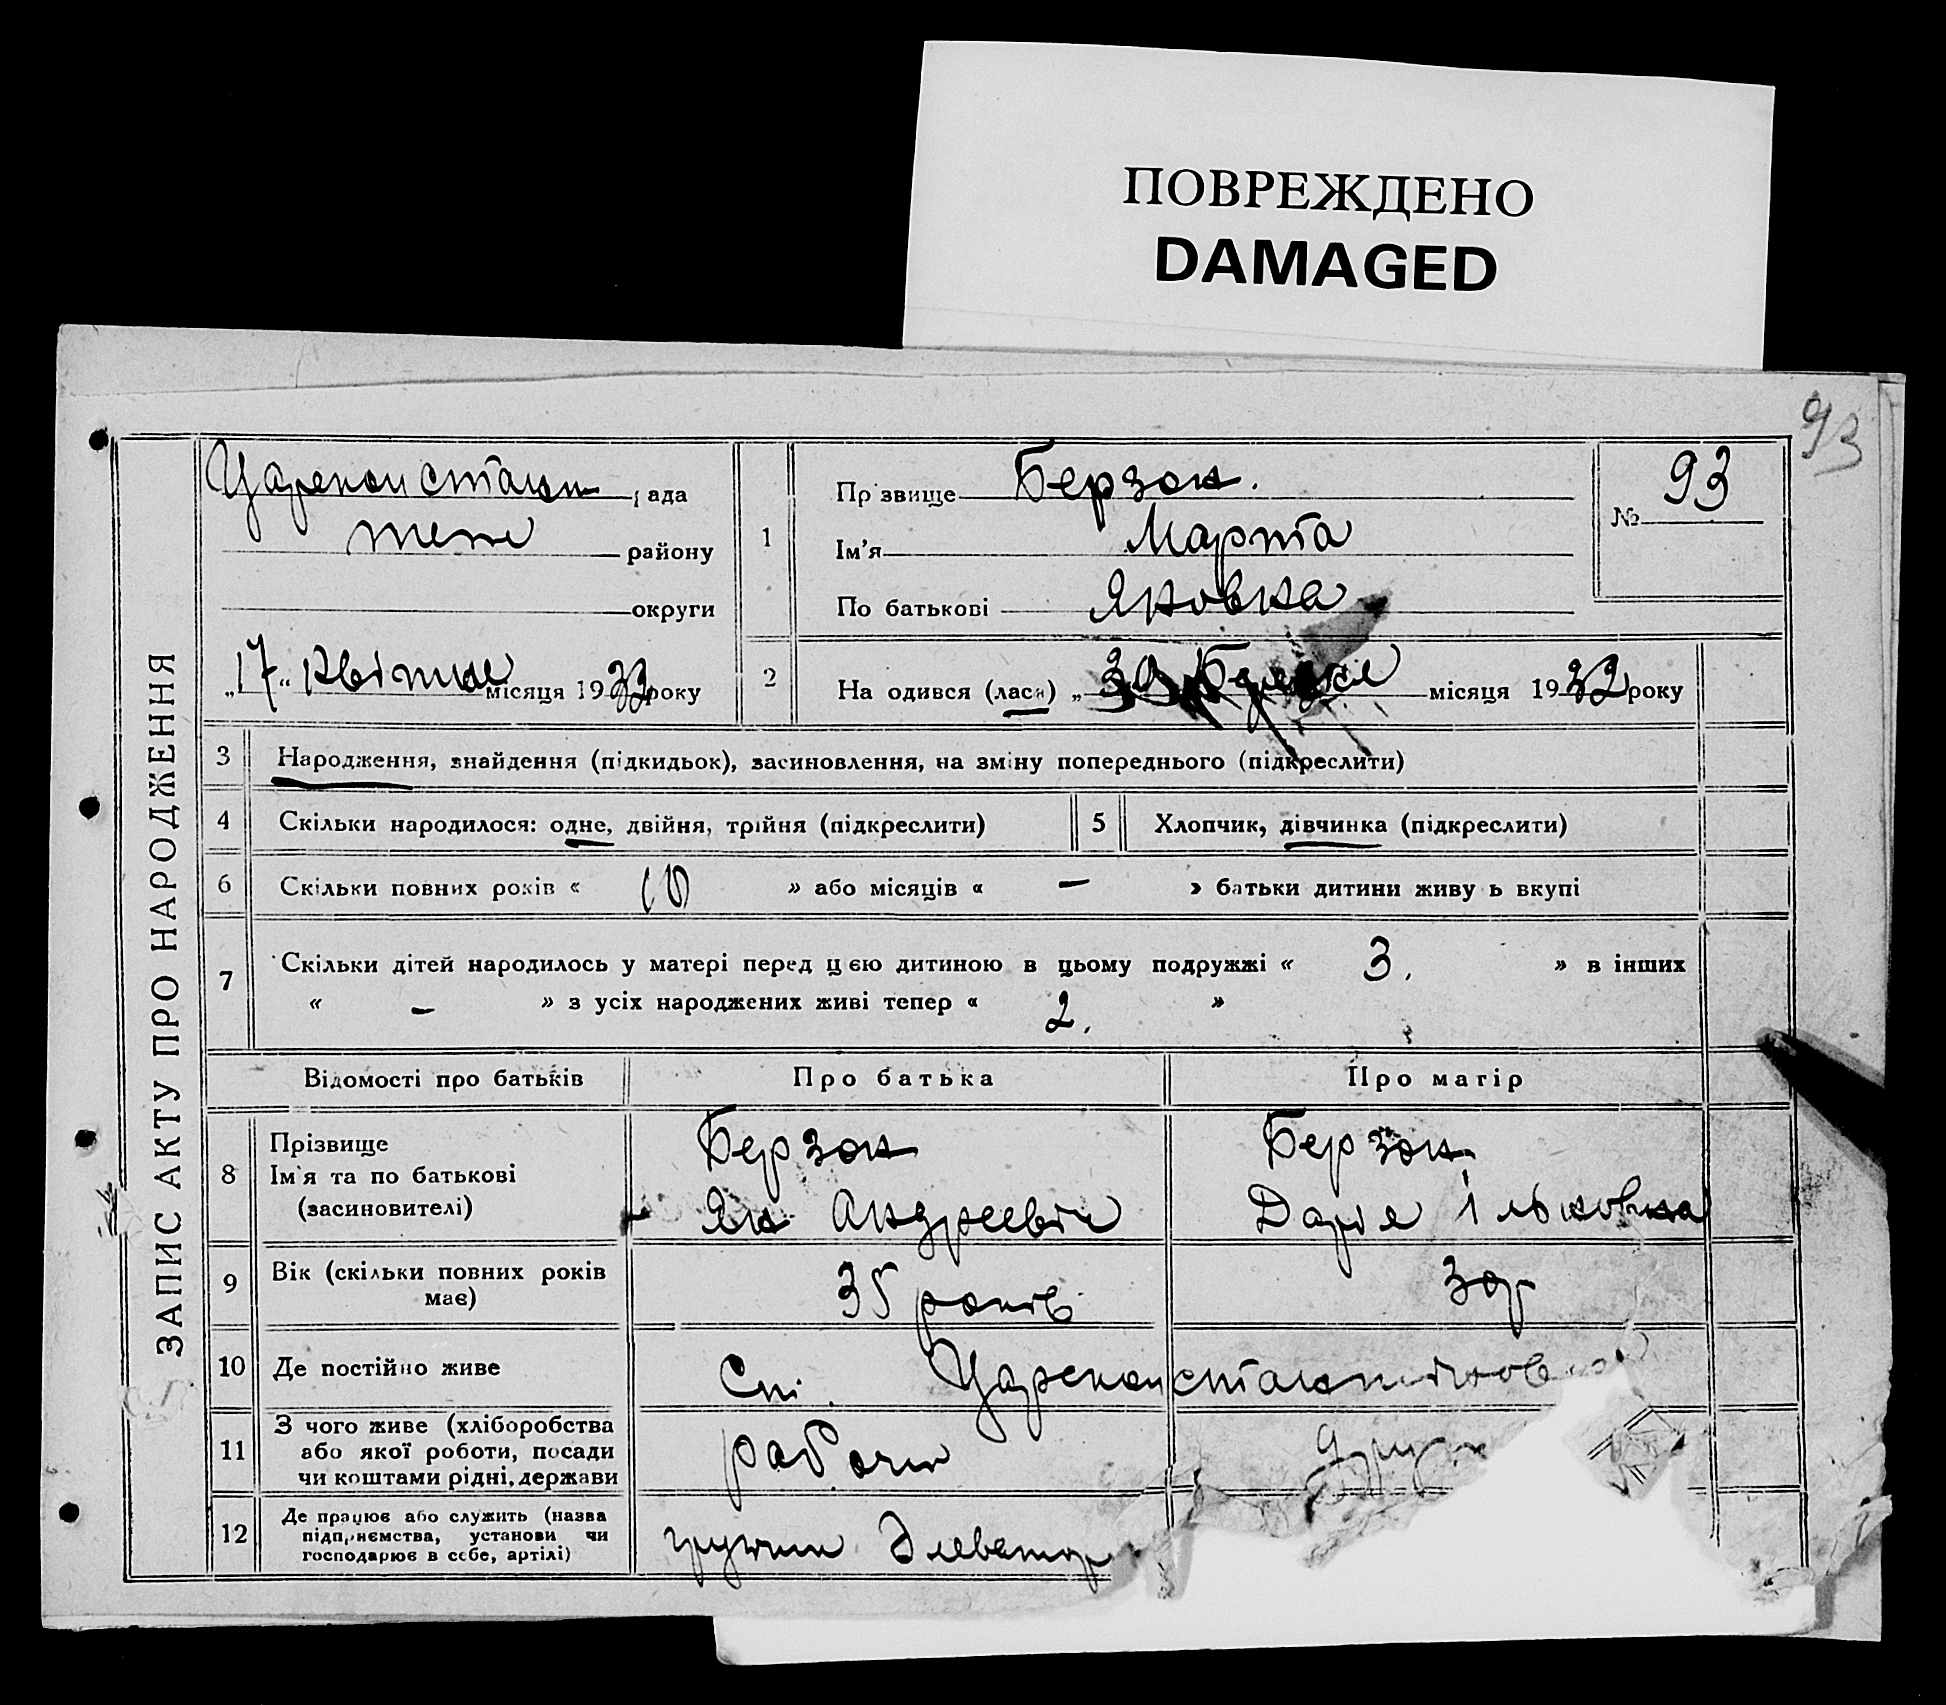 ПОВРЕЖДЕНО
DAMAGED
93
ЗАПИС АКТУ ПРО НАРОДЖЕННЯ
Царекопстант рада
теж району
округи
„17“ Квітня місяця 1933 року
1
Прізвище Берзон.
Ім'я Марта
По батькові Яковна
№ 93
2
На одився (лася) „ 30 місяця 1932 року
3 Народження, знайдення (підкидьок), засиновлення, на зміну попереднього (підкреслити)
4 Скільки народилося: одне, двійня, трійня (підкреслити)
5 Хлопчик, дівчинка (підкреслити)
6 Скільки повних років « 10 » або місяців « — » батьки дитини живу ь вкупі
7 Скільки дітей народилось у матері перед цією дитиною в цьому подружжі « 3. » в інших
« — » з усіх народжених живі тепер « 2. »
Відомості про батьків Про батька Про матір
8 Прізвище
Ім'я та по батькові
(засиновителі)
Берзон
Як Андреевіч
Берзон
Дарія Ільковна
9 Вік (скільки повних років
має)
35 років
30р
10 Де постійно живе
Сті. Царекопстантінов
11 З чого живе (хліборобства
або якої роботи, посади
чи коштами рідні, держави
рабочи
12 Де працює або служить (назва
підприємства, установи чи
господарює в себе, артілі)
Элеватор